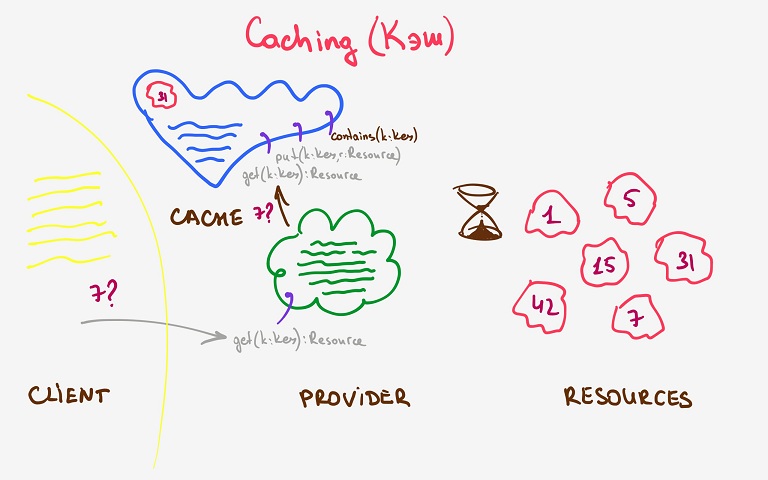 Caching (Кэш)
31
contains(k:Key)
put(k:Key,r:Resource)
get(k:Key):Resource
CACHE 7?
1
5
15
31
42
7
7?
get(k:Key):Resource
CLIENT
PROVIDER
RESOURCES